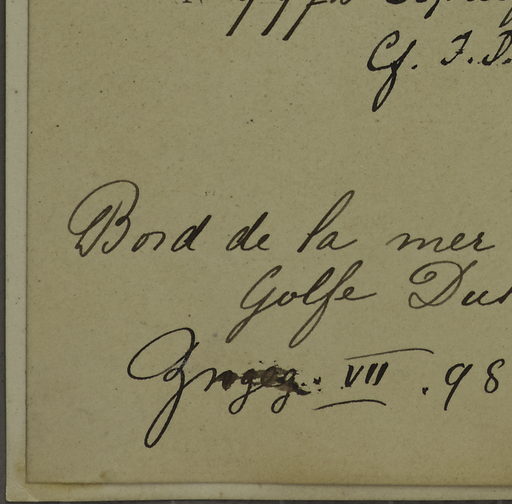 Cf. J. D.
Bord de la mer
Golfe Dus
VII . 98